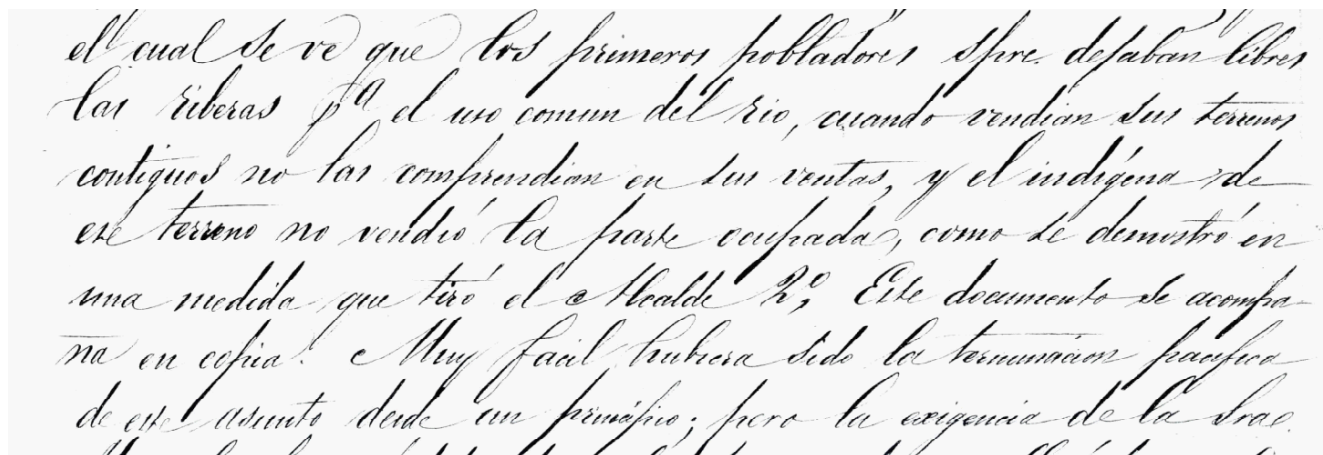 el cual se ve que los primeros pobladores spre. dejaban libres
las riberas pª el uso comun del rio, cuando vendian sus terrenos
contiguos no las comprendian en sus ventas, y el indígena de
ese terreno no vendió la parte ocupada, como se demostró en
una medida que tiró el Alcalde 2º, Este documento se acompa-
ña en copia. Muy facil hubiera sido la terminacion pacifica
de este asunto desde un principio; pero la exigencia de la Sra.